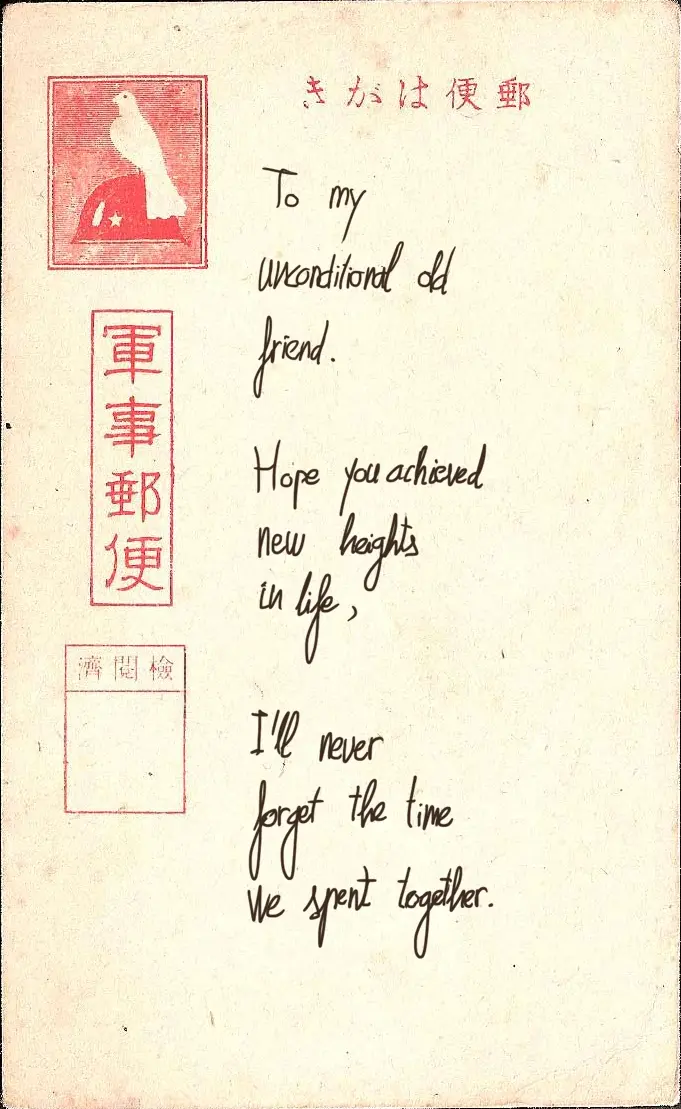 郵便はがき
軍事郵便
檢閲濟
To my
unconditional old
friend.
Hope you achieved
new heights
in life,
I'll never
forget the time
we spent together.